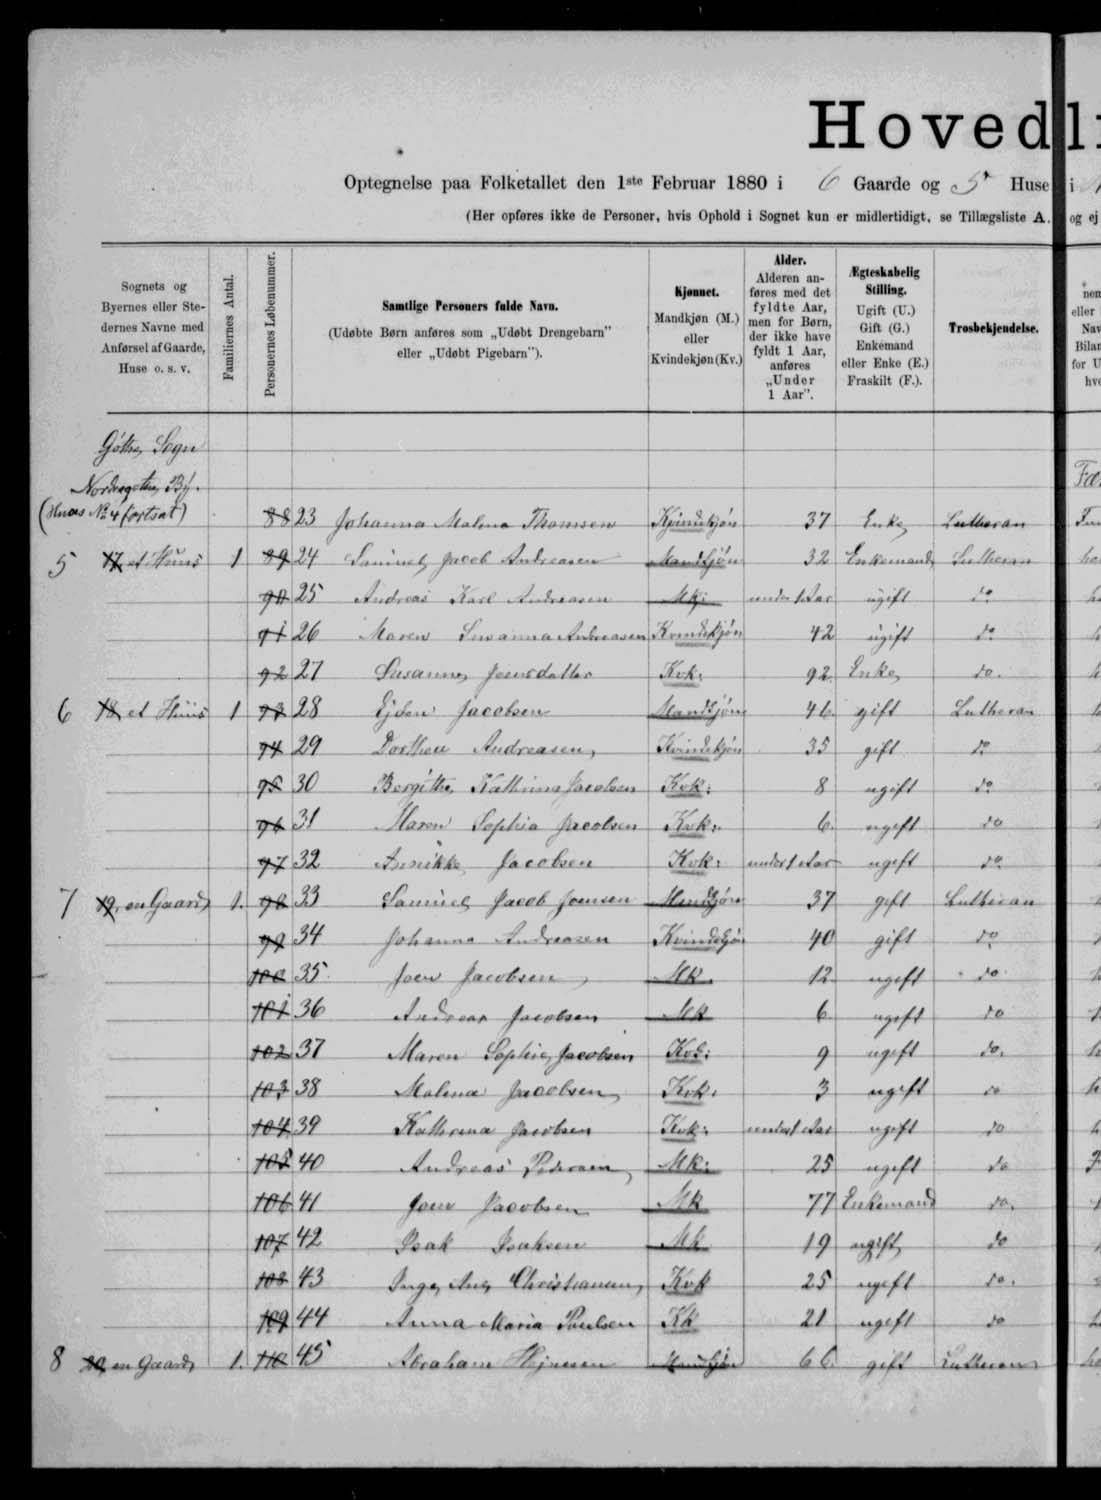 Hovedli
Optegnelse paa Folketallet den 1ste Februar 1880 i 6 Gaarde og 5 Huse i
(Her opføres ikke de Personer, hvis Ophold i Sognet kun er midlertidigt, se Tillægsliste A. og ej
Sognets og Byernes eller Stedernes Navne med Anførsel af Gaarde, Huse o. s. v.
Familiernes Antal.
Personernes Løbenummer.
Samtlige Personers fulde Navn.
(Udøbte Børn anføres som „Udøbt Drengebarn” eller „Udøbt Pigebarn”).
Kjønnet.
Mandkjøn (M.) eller Kvindekjøn (Kv.)
Alder.
Alderen anføres med det fyldte Aar, men for Børn, der ikke have fyldt 1 Aar, anføres „Under 1 Aar”.
Ægteskabelig Stilling.
Ugift (U.) Gift (G.) Enkemand eller Enke (E.) Fraskilt (F.).
Trosbekjendelse.
Gøthe Sogn
Nordregøthe By.
(Huus No 4 fortsat) 88 23 Johanna Malena Thomsen Kvindekjøn 37 Enke Lutheran
5 17, et Huus 1 89 24 Samuel Jacob Andreasen Mandkjøn 32 Enkemand Lutheran
90 25 Andreas Karl Andreasen Mk: under 1 Aar ugift do
91 26 Maren Susanna Andreasen Kvindekjøn 42 ugift do
92 27 Susanna Joensdatter Kvk: 92 Enke do.
6 18, et Huus 1 93 28 Ejden Jacobsen Mandkjøn 46 gift Lutheran
94 29 Dorthea Andreasen Kvindekjøn 35 gift do
95 30 Bergithe Kathrina Jacobsen Kvk: 8 ugift do
96 31 Maren Sophia Jacobsen Kvk: 6 ugift do
97 32 Annikke Jacobsen Kvk: under 1 Aar ugift do
7 19, en Gaard 1. 98 33 Samuel Jacob Joensen Mandkjøn 37 gift Lutheran
99 34 Johanna Andreasen Kvindekjøn 40 gift do
100 35 Joen Jacobsen Mk. 12 ugift do
101 36 Andreas Jacobsen Mk 6 ugift do
102 37 Maren Sophie Jacobsen Kvk: 9 ugift do.
103 38 Malena Jacobsen Kvk. 3 ugift do
104 39 Kathrina Jacobsen Kvk: under 1 Aar ugift do
105 40 Andreas Pedersen Mk: 25 ugift do
106 41 Joen Jacobsen Mk 77 Enkemand do.
107 42 Isak Isaksen Mk 19 ugift do
108 43 Inge Ane Christiansen Kvk 25 ugift do.
109 44 Anna Maria Poulsen Kk 21 ugift do
8 20, en Gaard 1. 110 45 Abraham Hejnesen Mandkjøn 66 gift Lutheran